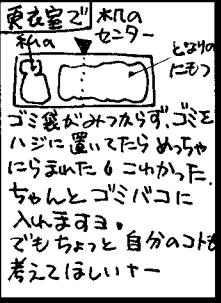 更衣室で
机の
センター
私の
となりの
にもつ
ゴミ袋がみつからず、ゴミを
ハジに置いてたらめっちゃ
にらまれた。こわかった。
ちゃんとゴミバコに
入れますヨ。
でもちょっと自分のコトも
考えてほしいナー